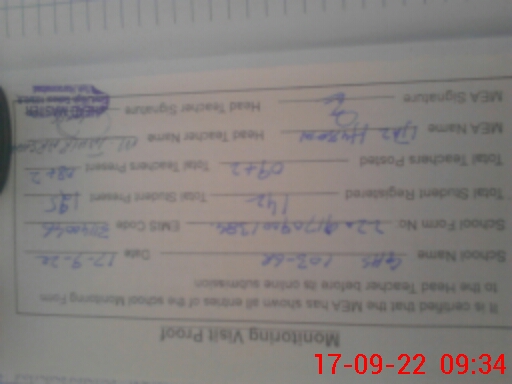 Monitoring Visit Proof
It is certified that the MEA has shown all entries of the school Monitoring Form
to the Head Teacher before its online submission
School Name GHS 103-6R Date 17-9-22
School Form No. EMIS Code
Total Student Registered 142 Total Student Present 125
Total Teachers Posted 09+2 Total Teachers Present 08+2
MEA Name Head Teacher Name
MEA Signature Head Teacher Signature
HEAD MASTER
17-09-22 09:34